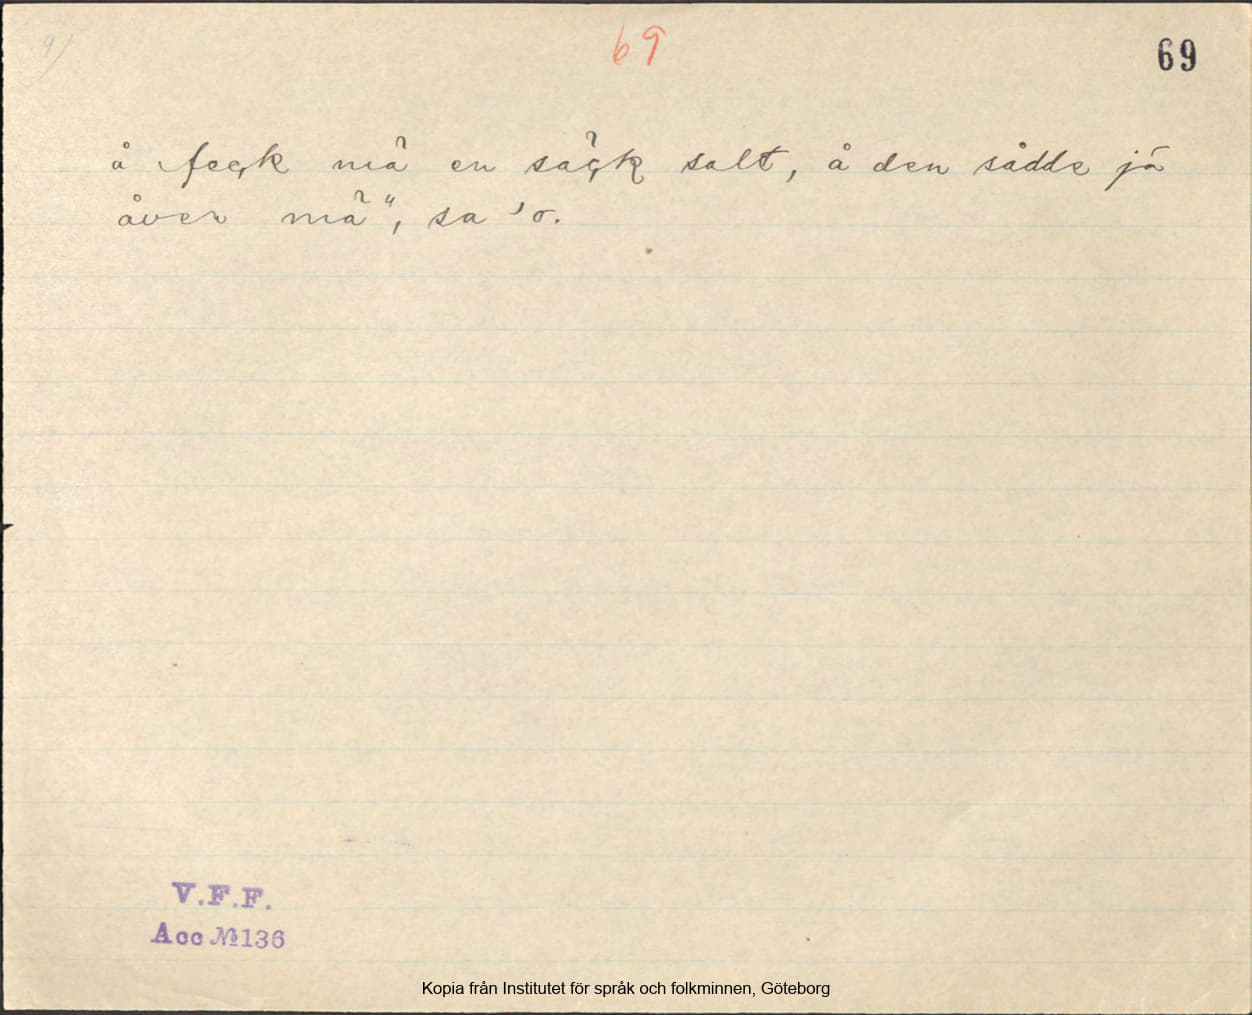 9)
69
69
å feçk mä̉ en sä̉çk salt, å den sådde já
åver mä̉", sa 'o.
V.F.F.
Acc №136
Kopia från Institutet för språk och folkminnen, Göteborg